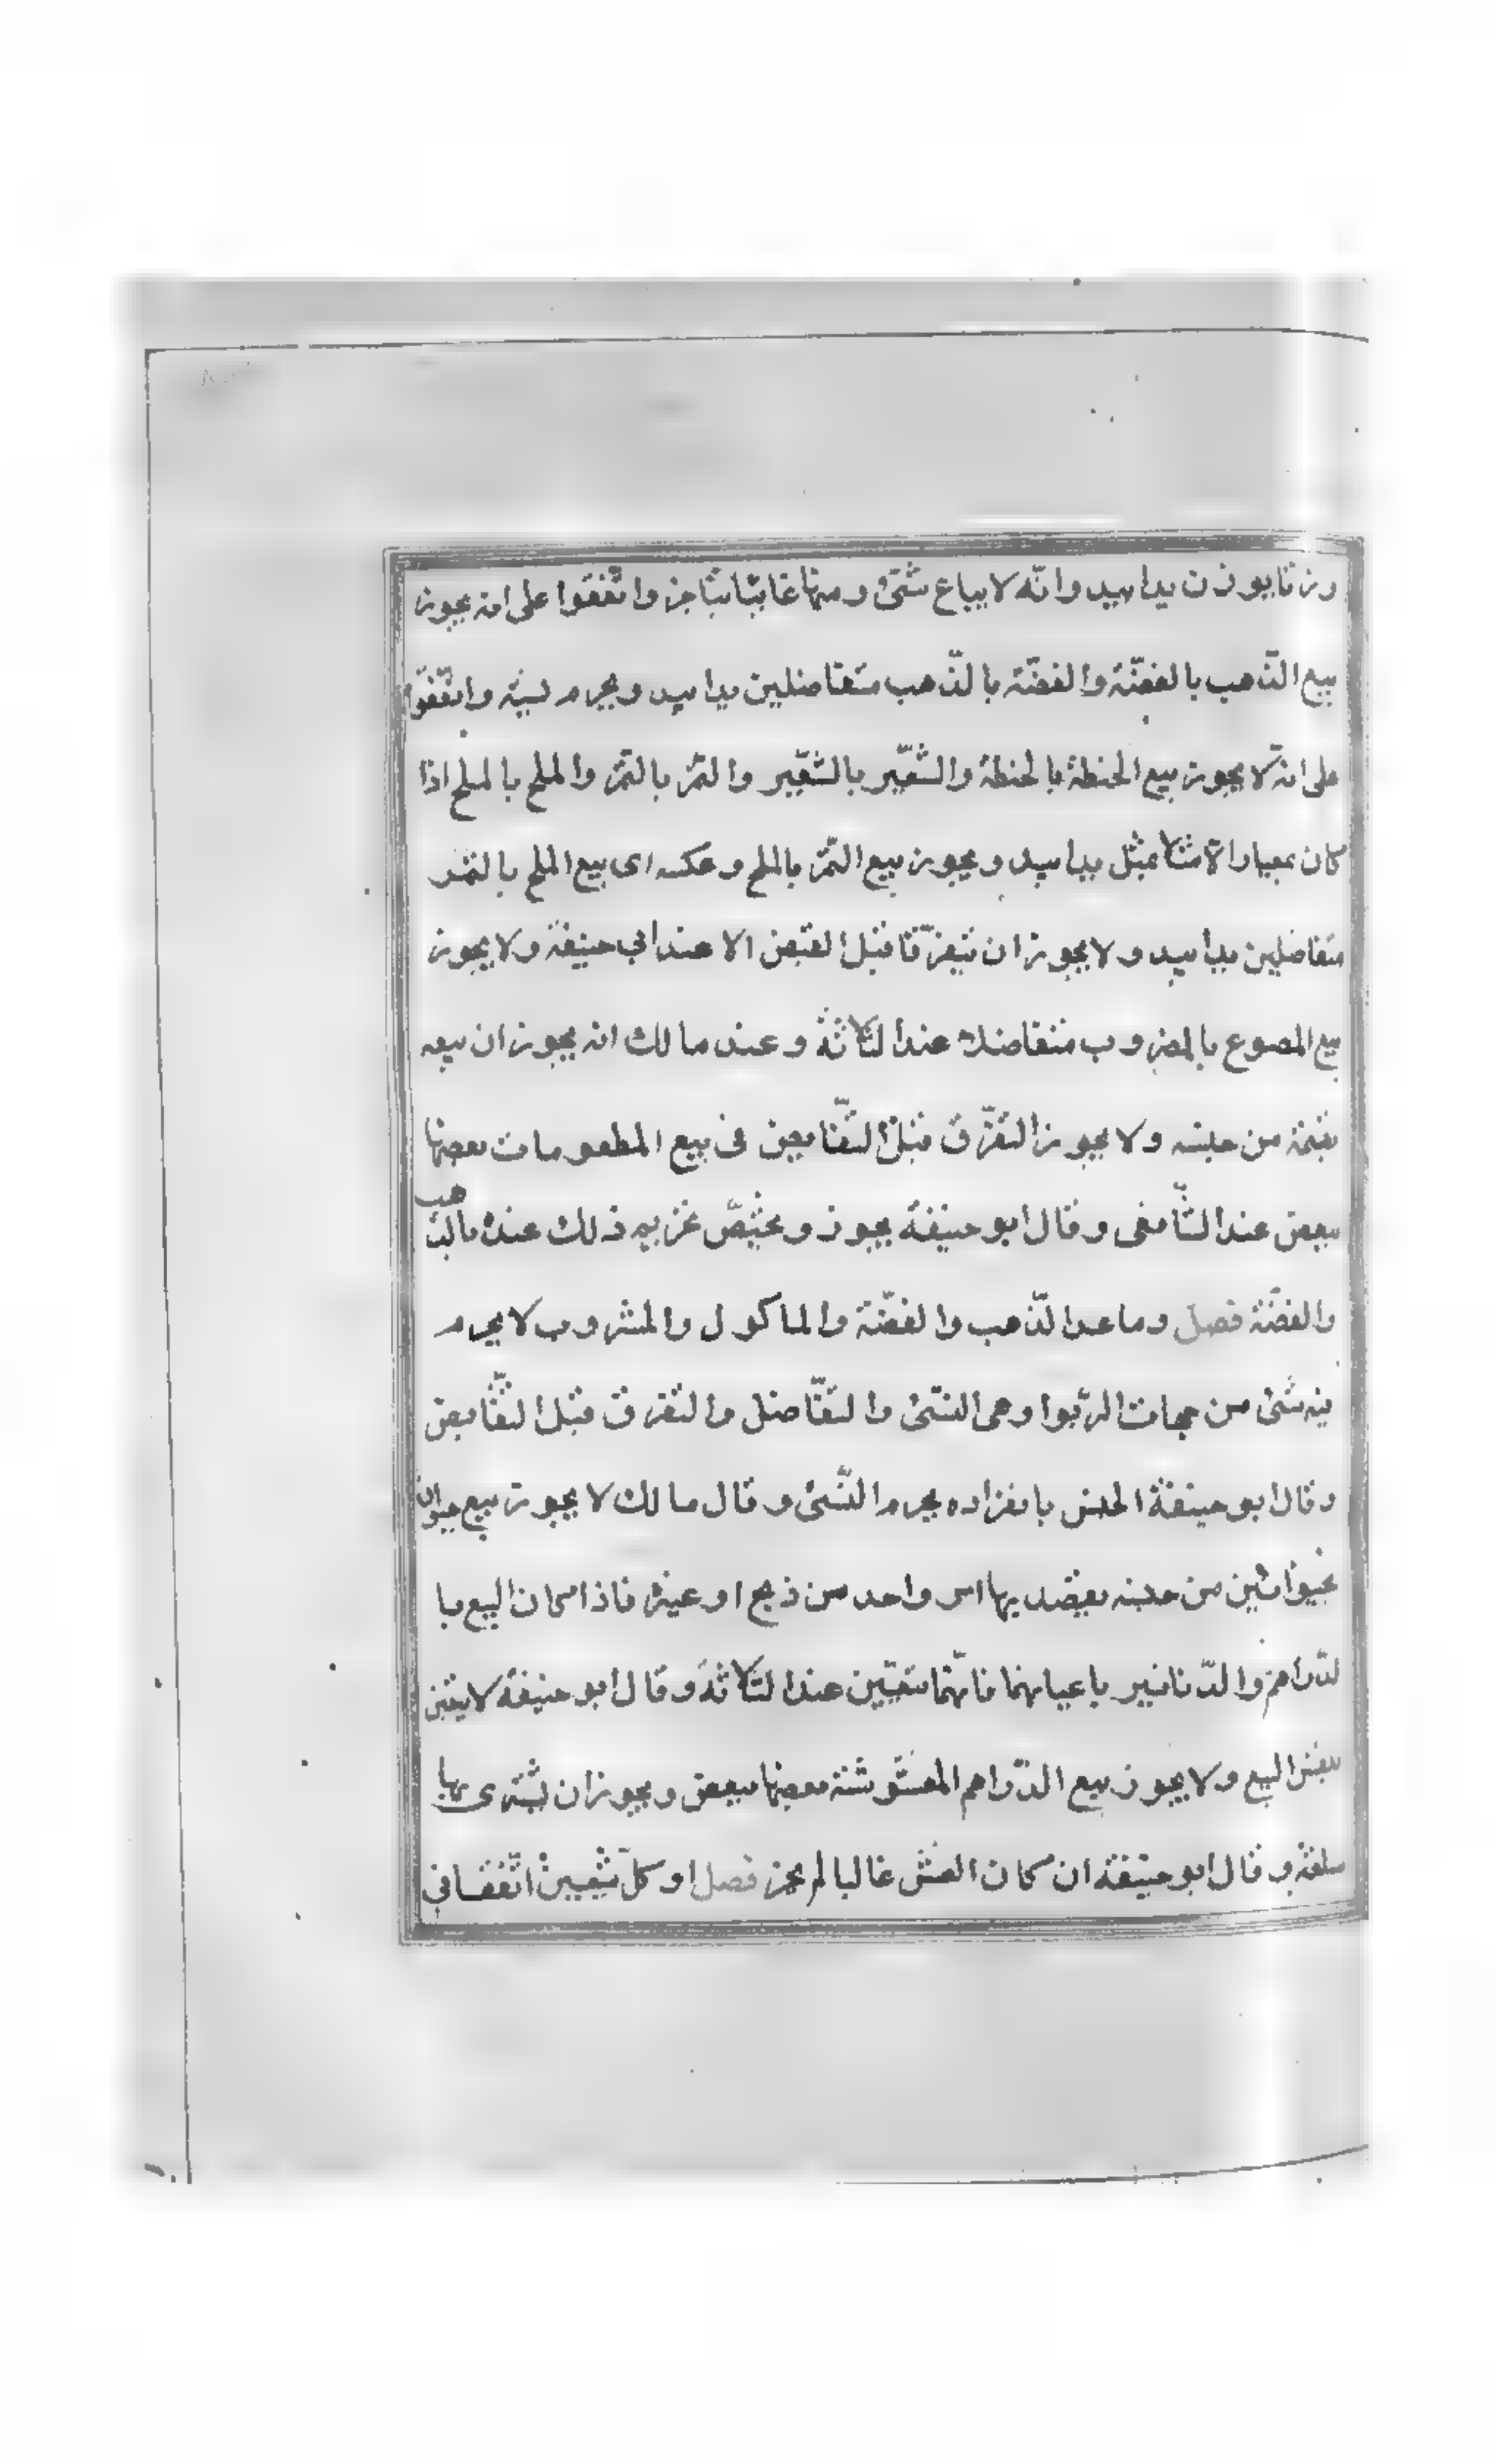 وزنا بوزن يدا بيد وانّه لا يباع شئ ومنها غائبا بناجز واتّفقوا على انه يجوز
بيع الذّهب بالفضّة والفضّة بالذّهب متفاضلين يدا بيد ويحرم نسيئه واتّفقوا
على انّه لا يجوز بيع الحنطة بالحنطة والشّعير بالشّعير والتمر بالتمر والملح بالملح اذا
كان بمعيار الّا مثلا بمثل يدا بيد ويجوز بيع التّمر بالملح وعكسه اى بيع الملح بالتمر
متفاضلين يدا بيد ولا يجوز ان يتفرّقا قبل القبض الا عند ابى حنيفة ولا يجوز
بيع المصوع بالمضروب متفاضلا عند الثلاثة وعند مالك انه يجوز ان يبيعه
بقيمة من جنسه ولا يجوز التفرّق قبل التّقابض فى بيع المطعومات بعضها
ببعض عند الشّافعى وقال ابو حنيفة يجوز ويختصّ تحريم ذلك عنده بالذهب
والفضّة فصل وما عدا الذّهب والفضّة والماكول والمشروب لا يحرم
فيه شئ من جهات الرّبوا وهى النسئ والتّفاضل والتفرق قبل التّقابض
وقال ابو حنيفة الجنس بانفراده يحرم النّسئ وقال مالك لا يجوز بيع حيوان
بحيوانين من جنسه يقصد بها امر واحد من ذبح او غيره فاذا كان البيع با
لدّراهم والدّنانير باعيانهما فانّهما متعيّن عند الثلاثة وقال ابو حنيفة لا يتعين
بنفس البيع ولا يجوز بيع الدّراهم المغشوشة بعضها ببعض ويجوز ان يشترى بها
سلعة وقال ابو حنيفة ان كان الغش غالبا لم يجز فصل او كلّ شيئين اتّفقا فى